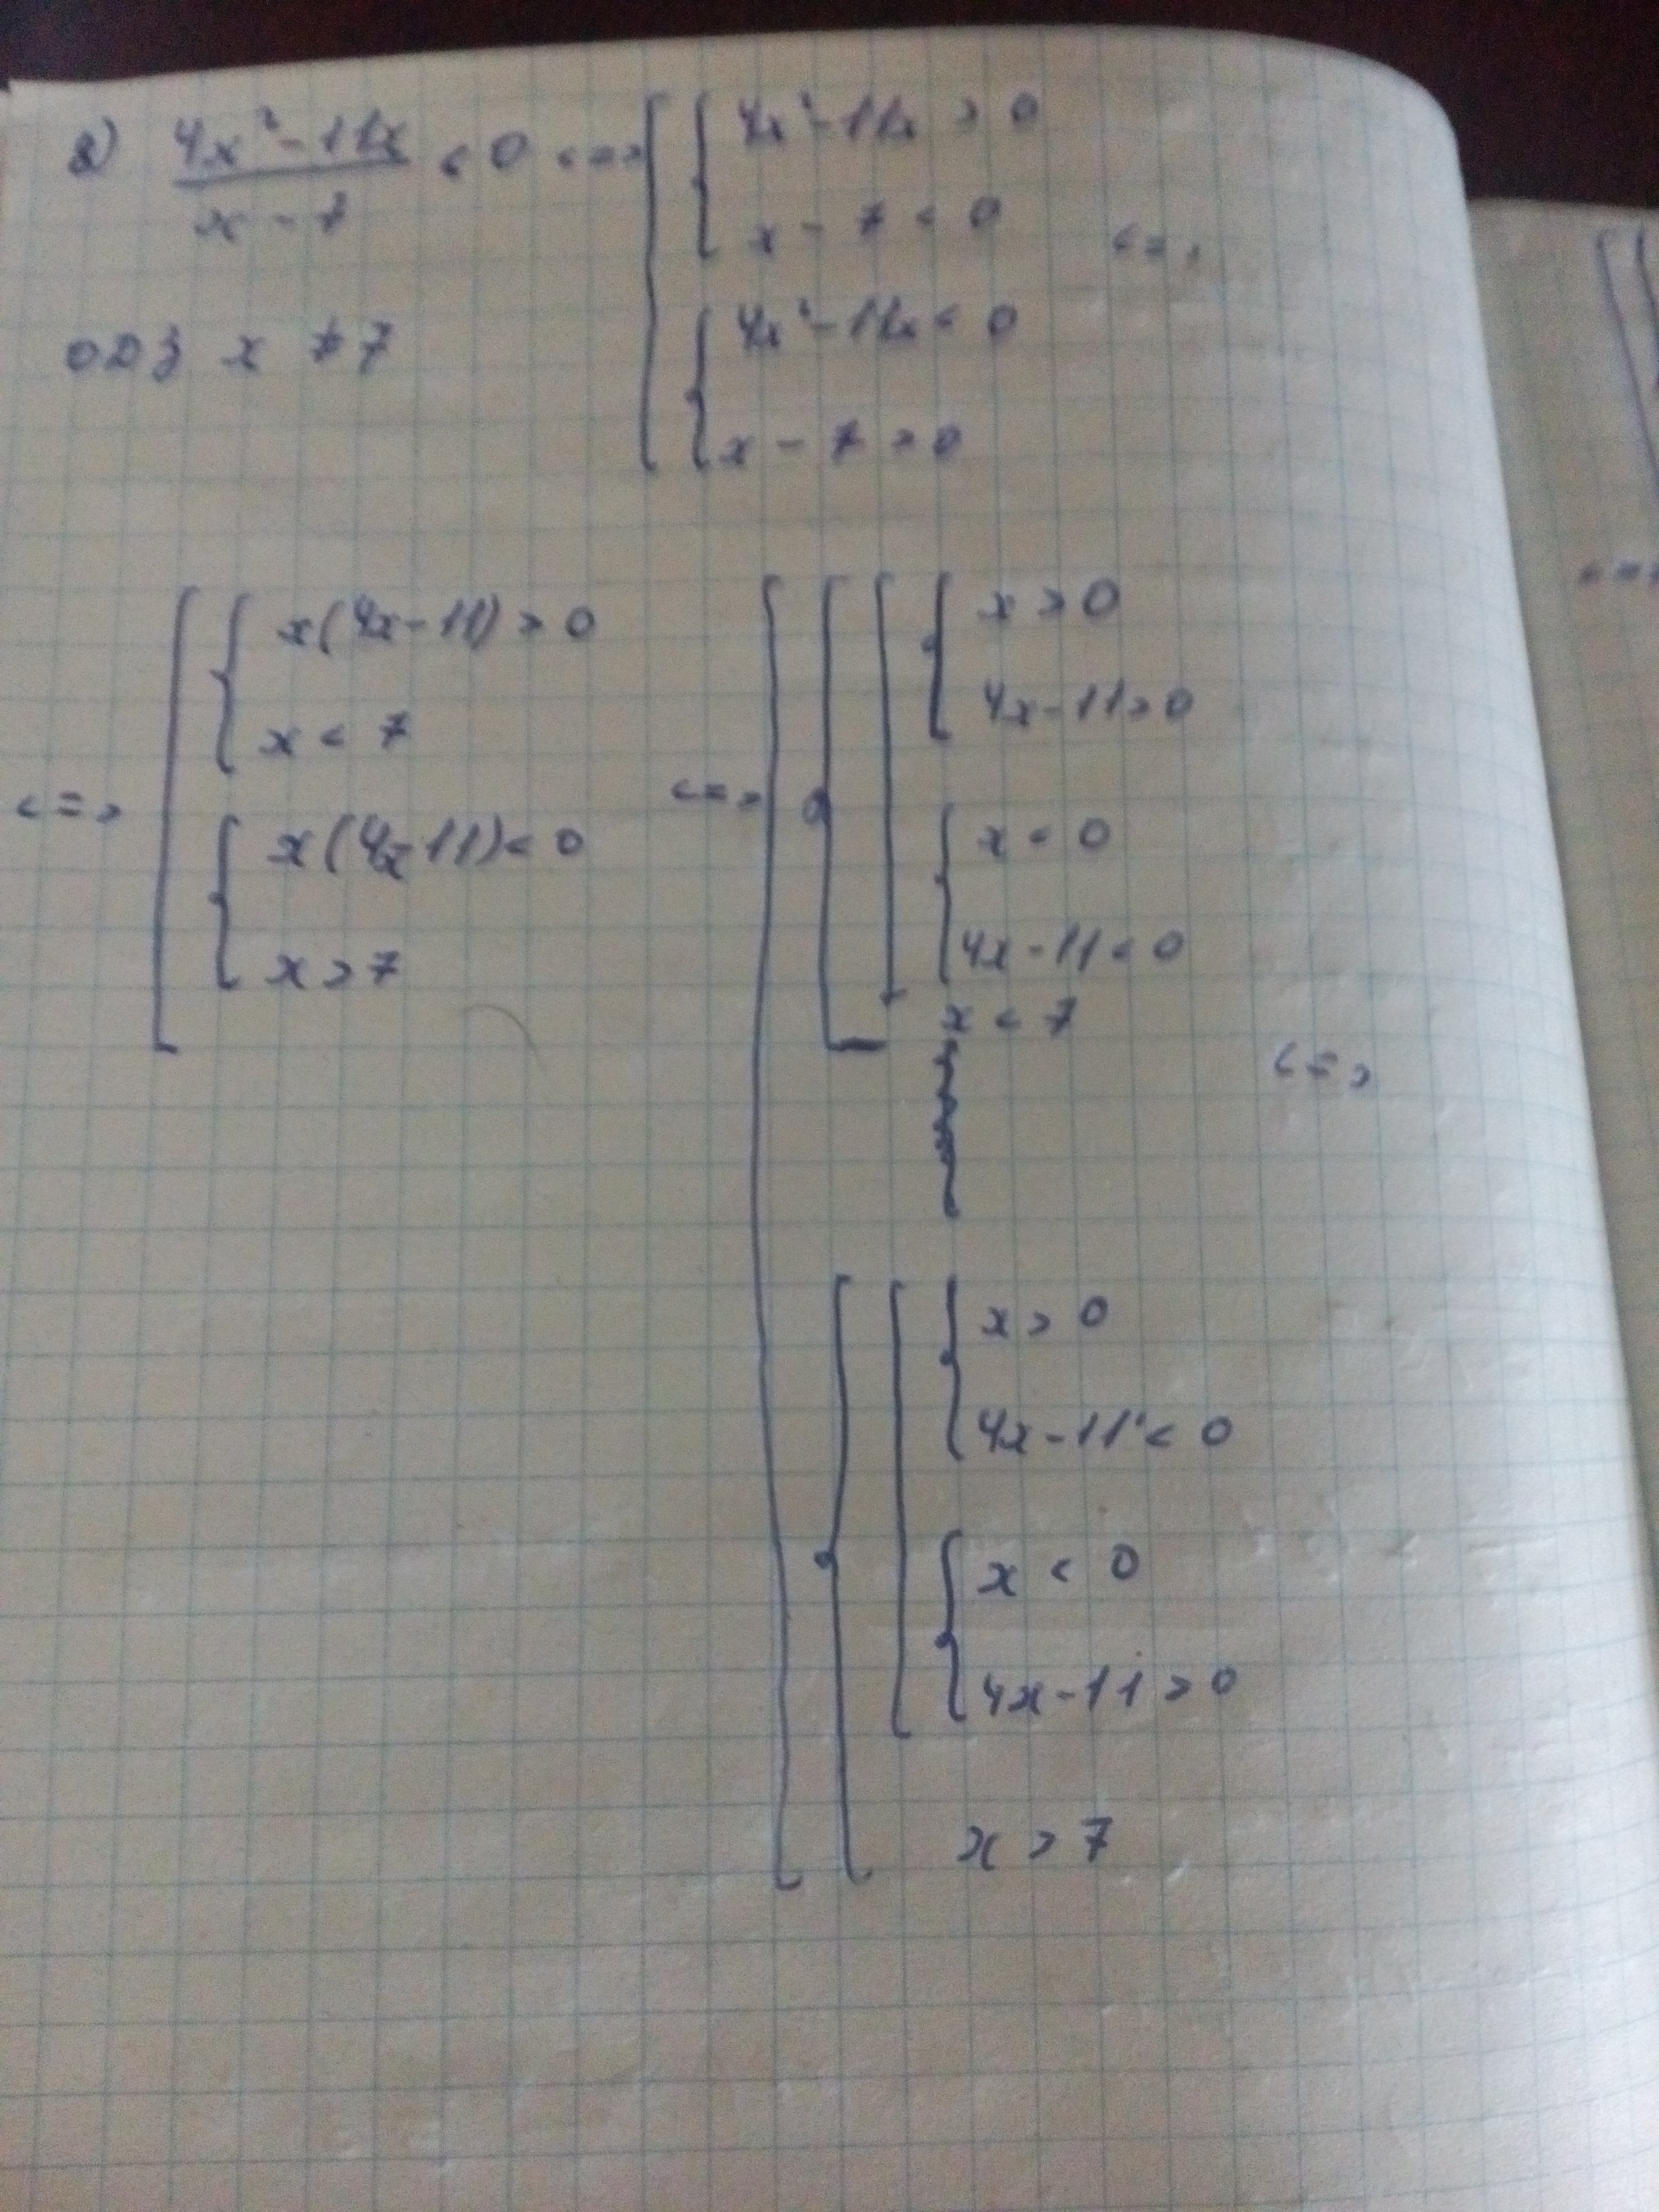 2) (4x² - 11x)/(x - 7) < 0 <=> [ { 4x² - 11x > 0
x - 7 < 0 <=>
ОДЗ x ≠ 7
{ 4x² - 11x < 0
x - 7 > 0
<=> [ { x(4x - 11) > 0
x < 7
{ x(4x - 11) < 0
x > 7
<=> [ { [ { x > 0
4x - 11 > 0
{ x < 0
4x - 11 < 0
x < 7
<=>
{ [ { x > 0
4x - 11 < 0
{ x < 0
4x - 11 > 0
x > 7